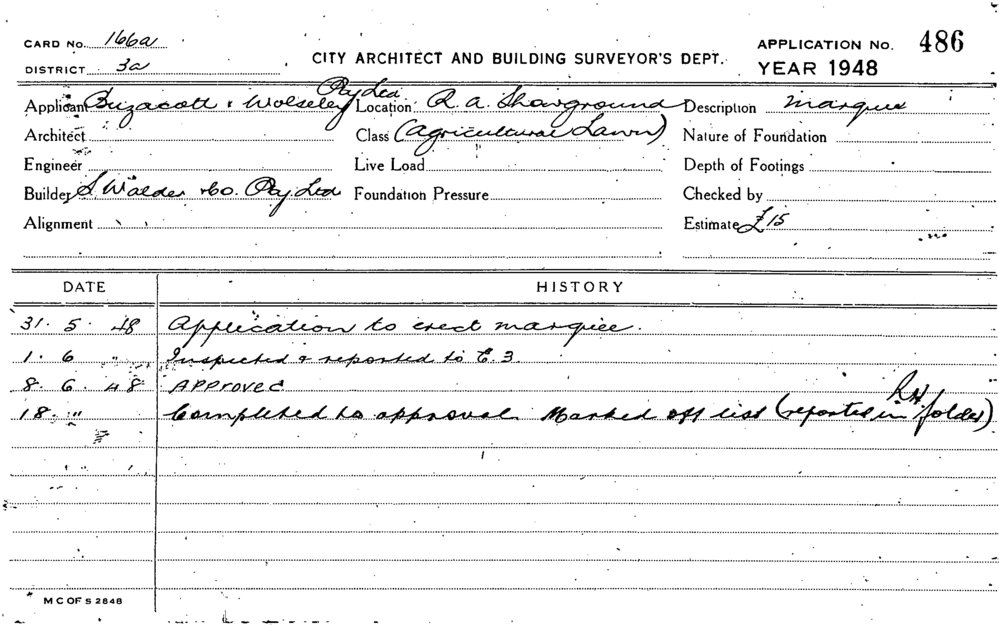 CARD No. 166a
DISTRICT 3a
CITY ARCHITECT AND BUILDING SURVEYOR'S DEPT.
APPLICATION No. 486
YEAR 1948
Applicant Buzacott & Wolseley Pty Ltd Location R.A. Showground Description Marquee
Architect Class (Agricultural Lawn) Nature of Foundation
Engineer Live Load Depth of Footings
Builder S. Walder & Co. Pty. Ltd Foundation Pressure Checked by
Alignment Estimate £15
DATE HISTORY
31. 5. 48 Application to erect marquee.
1. 6 " Inspected & reported to C. 3.
8. 6. 48 APPROVED
18. " Completed to approval. Marked off list (reported in folder) RH
M C OF S 2848